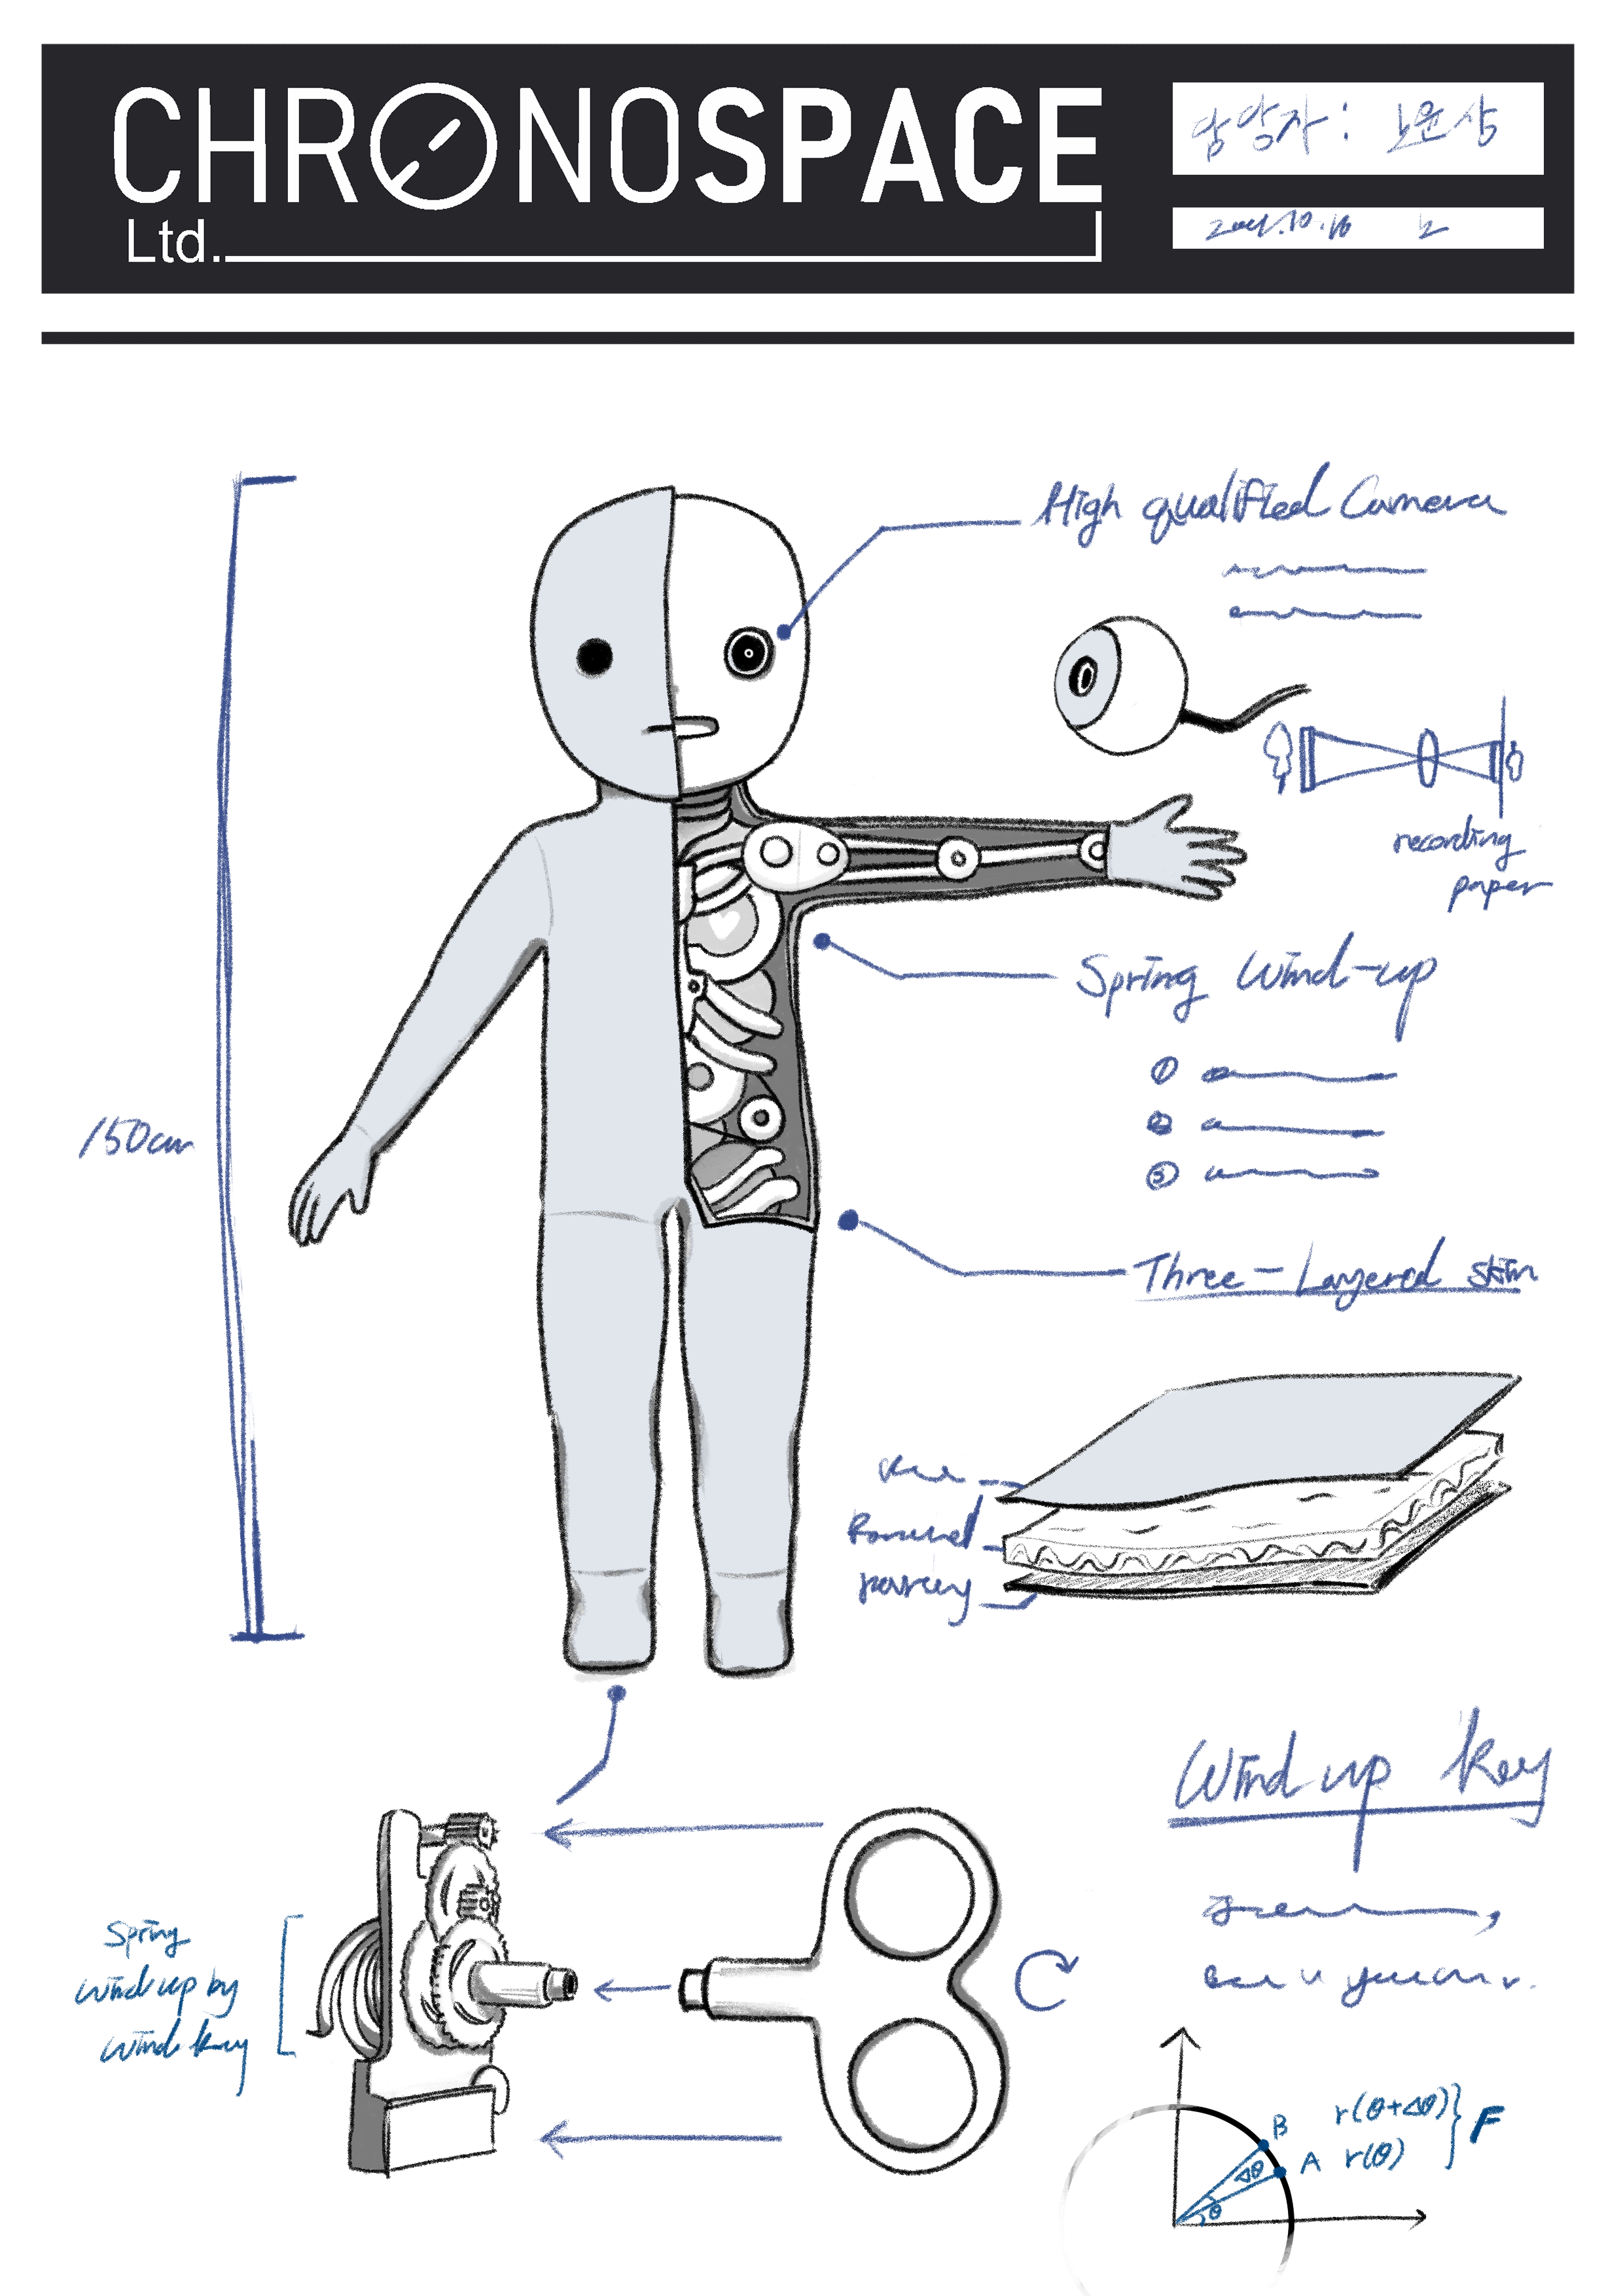 CHRONOSPACE
Ltd.
담당자 : 노윤상
High qualified Camera
recording
paper
Spring Wind-up
①
②
③
150cm
Three-Layered skin
Wind up key
Spring
Wind up by
Wind key
r(θ+Δθ)
F
B
A r(θ)
Δθ
θ